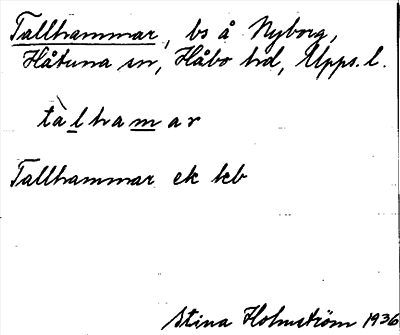 Tallhammar, bs å Nyborg,
Håtuna sn, Håbo hd, Upps. l.
tàlhamar
Tallhammar ek kb
Stina Holmström 1936